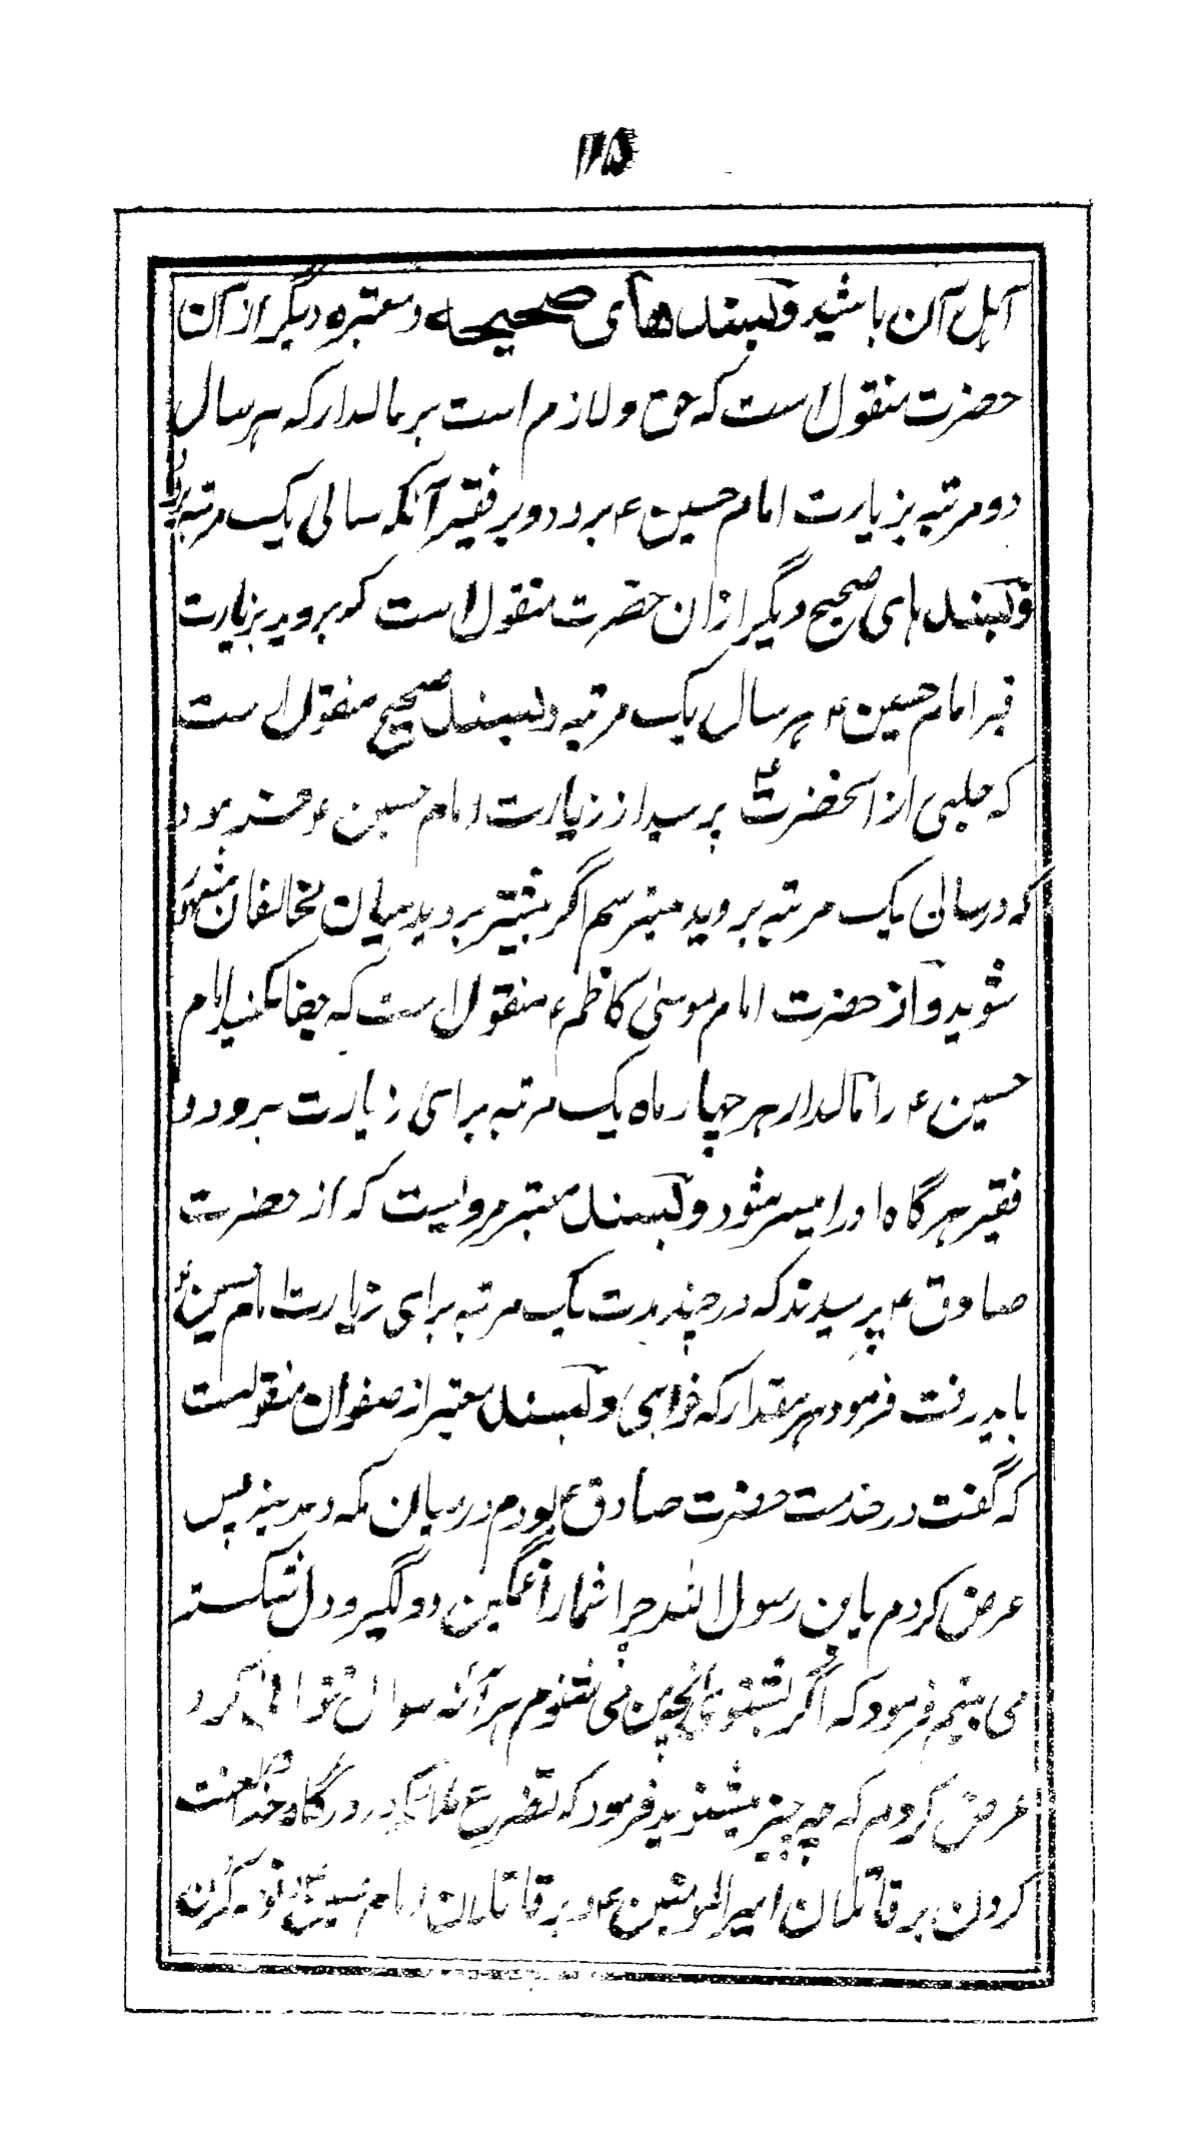 ۱۲۵
اہل آن باشید و بسند های صحیحه و معتبره دیگر از آن
حضرت منقول است که حق و لازم است بر مالدار که ہر سال
دو مرتبہ بزیارت امام حسین ع برود و بر فقیر آنکہ سالی یک مرتبہ برود
و بسند ہای صحیح دیگر ازان حضرت منقول است که بروید بزیارت
قبر امام حسین ع ہر سال یک مرتبہ و بسند صحیح منقول است
که حلبی از آنحضرت ع پرسید از زیارت امام حسین ع فرمود
که در سالی یک مرتبہ بروید میترسم اگر بیشتر بروید میان مخالفان مشہور
شوید و از حضرت امام موسی کاظم ع منقول است که جفا مکنید امام
حسین ع را مالدار ہر چہار ماه یک مرتبہ برای زیارت برود و
فقیر ہر گاه او را میسر شود و بسند معتبر مرویست که از حضرت
صادق ع پرسیدند که در چند مدت یک مرتبہ برای زیارت امام حسین ع
باید رفت فرمود ہر مقدار که خواہی و بسند معتبر از صفوان منقولست
که گفت در خدمت حضرت صادق ع بودم در میان مکہ و مدینہ پس
عرض کردم یابن رسول اللہ چرا شما را غمگین و دلگیر و دل شکستہ
می بینم فرمود که اگر بشنوی آنچہ من می شنوم ہر آئنہ سوال نتوانی کرد
عرض کردم که چہ چیز میشنوید فرمود که تضرع ملائکہ در درگاه خدا و لعنت
کردن بر قاتلان امیر المومنین ع و بر قاتلان امام حسین ع و نوحہ کردن